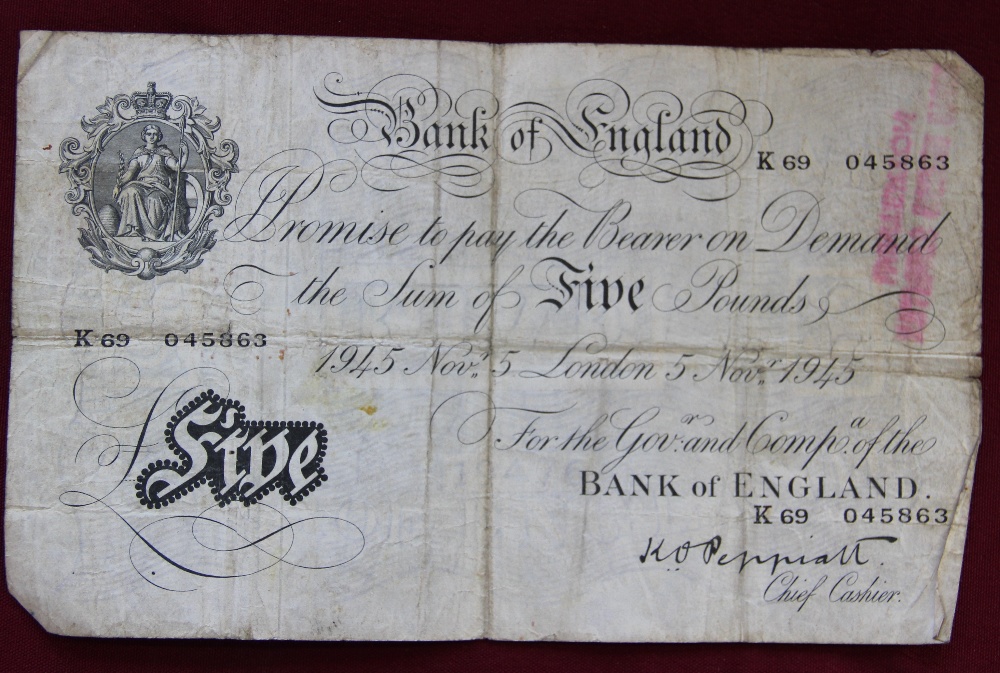 Bank of England
K 69 045863
I Promise to pay the Bearer on Demand
the Sum of Five Pounds
K 69 045863
1945 Novr. 5 London 5 Novr. 1945
For the Govr. and Compa. of the
BANK of ENGLAND.
£Five
K 69 045863
K O Peppiatt.
Chief Cashier.